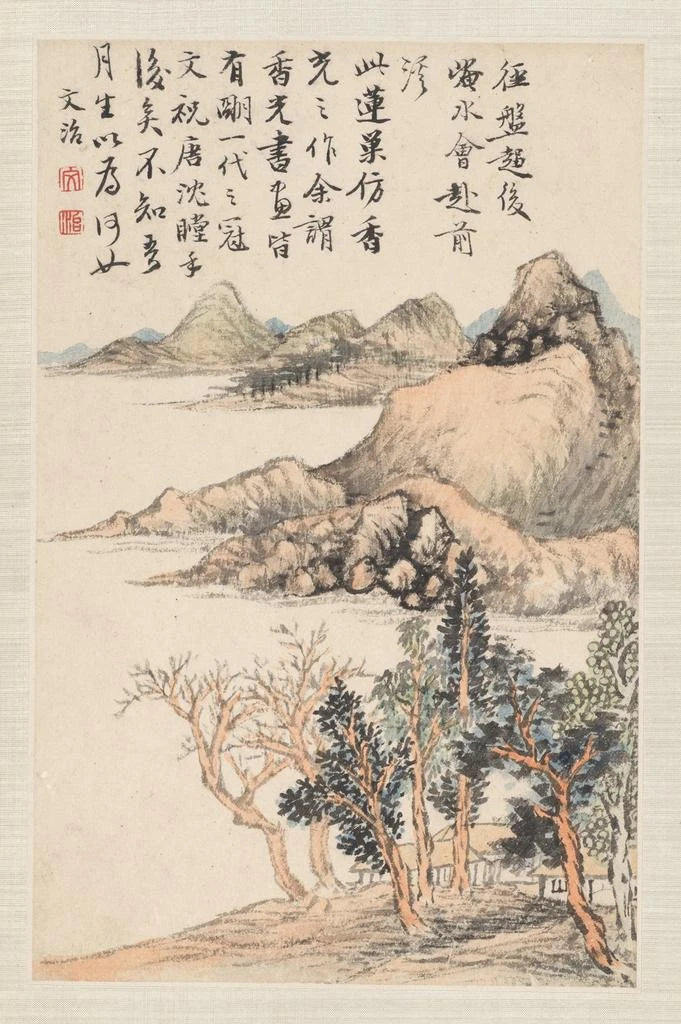 徑盤超後
巘水會赴前
溪
此蓮巢仿香
光之作余謂
香光書画皆
有明一代之冠
文祝唐沈瞠乎
後矣不知吾
月生以為何如
文治
文
治